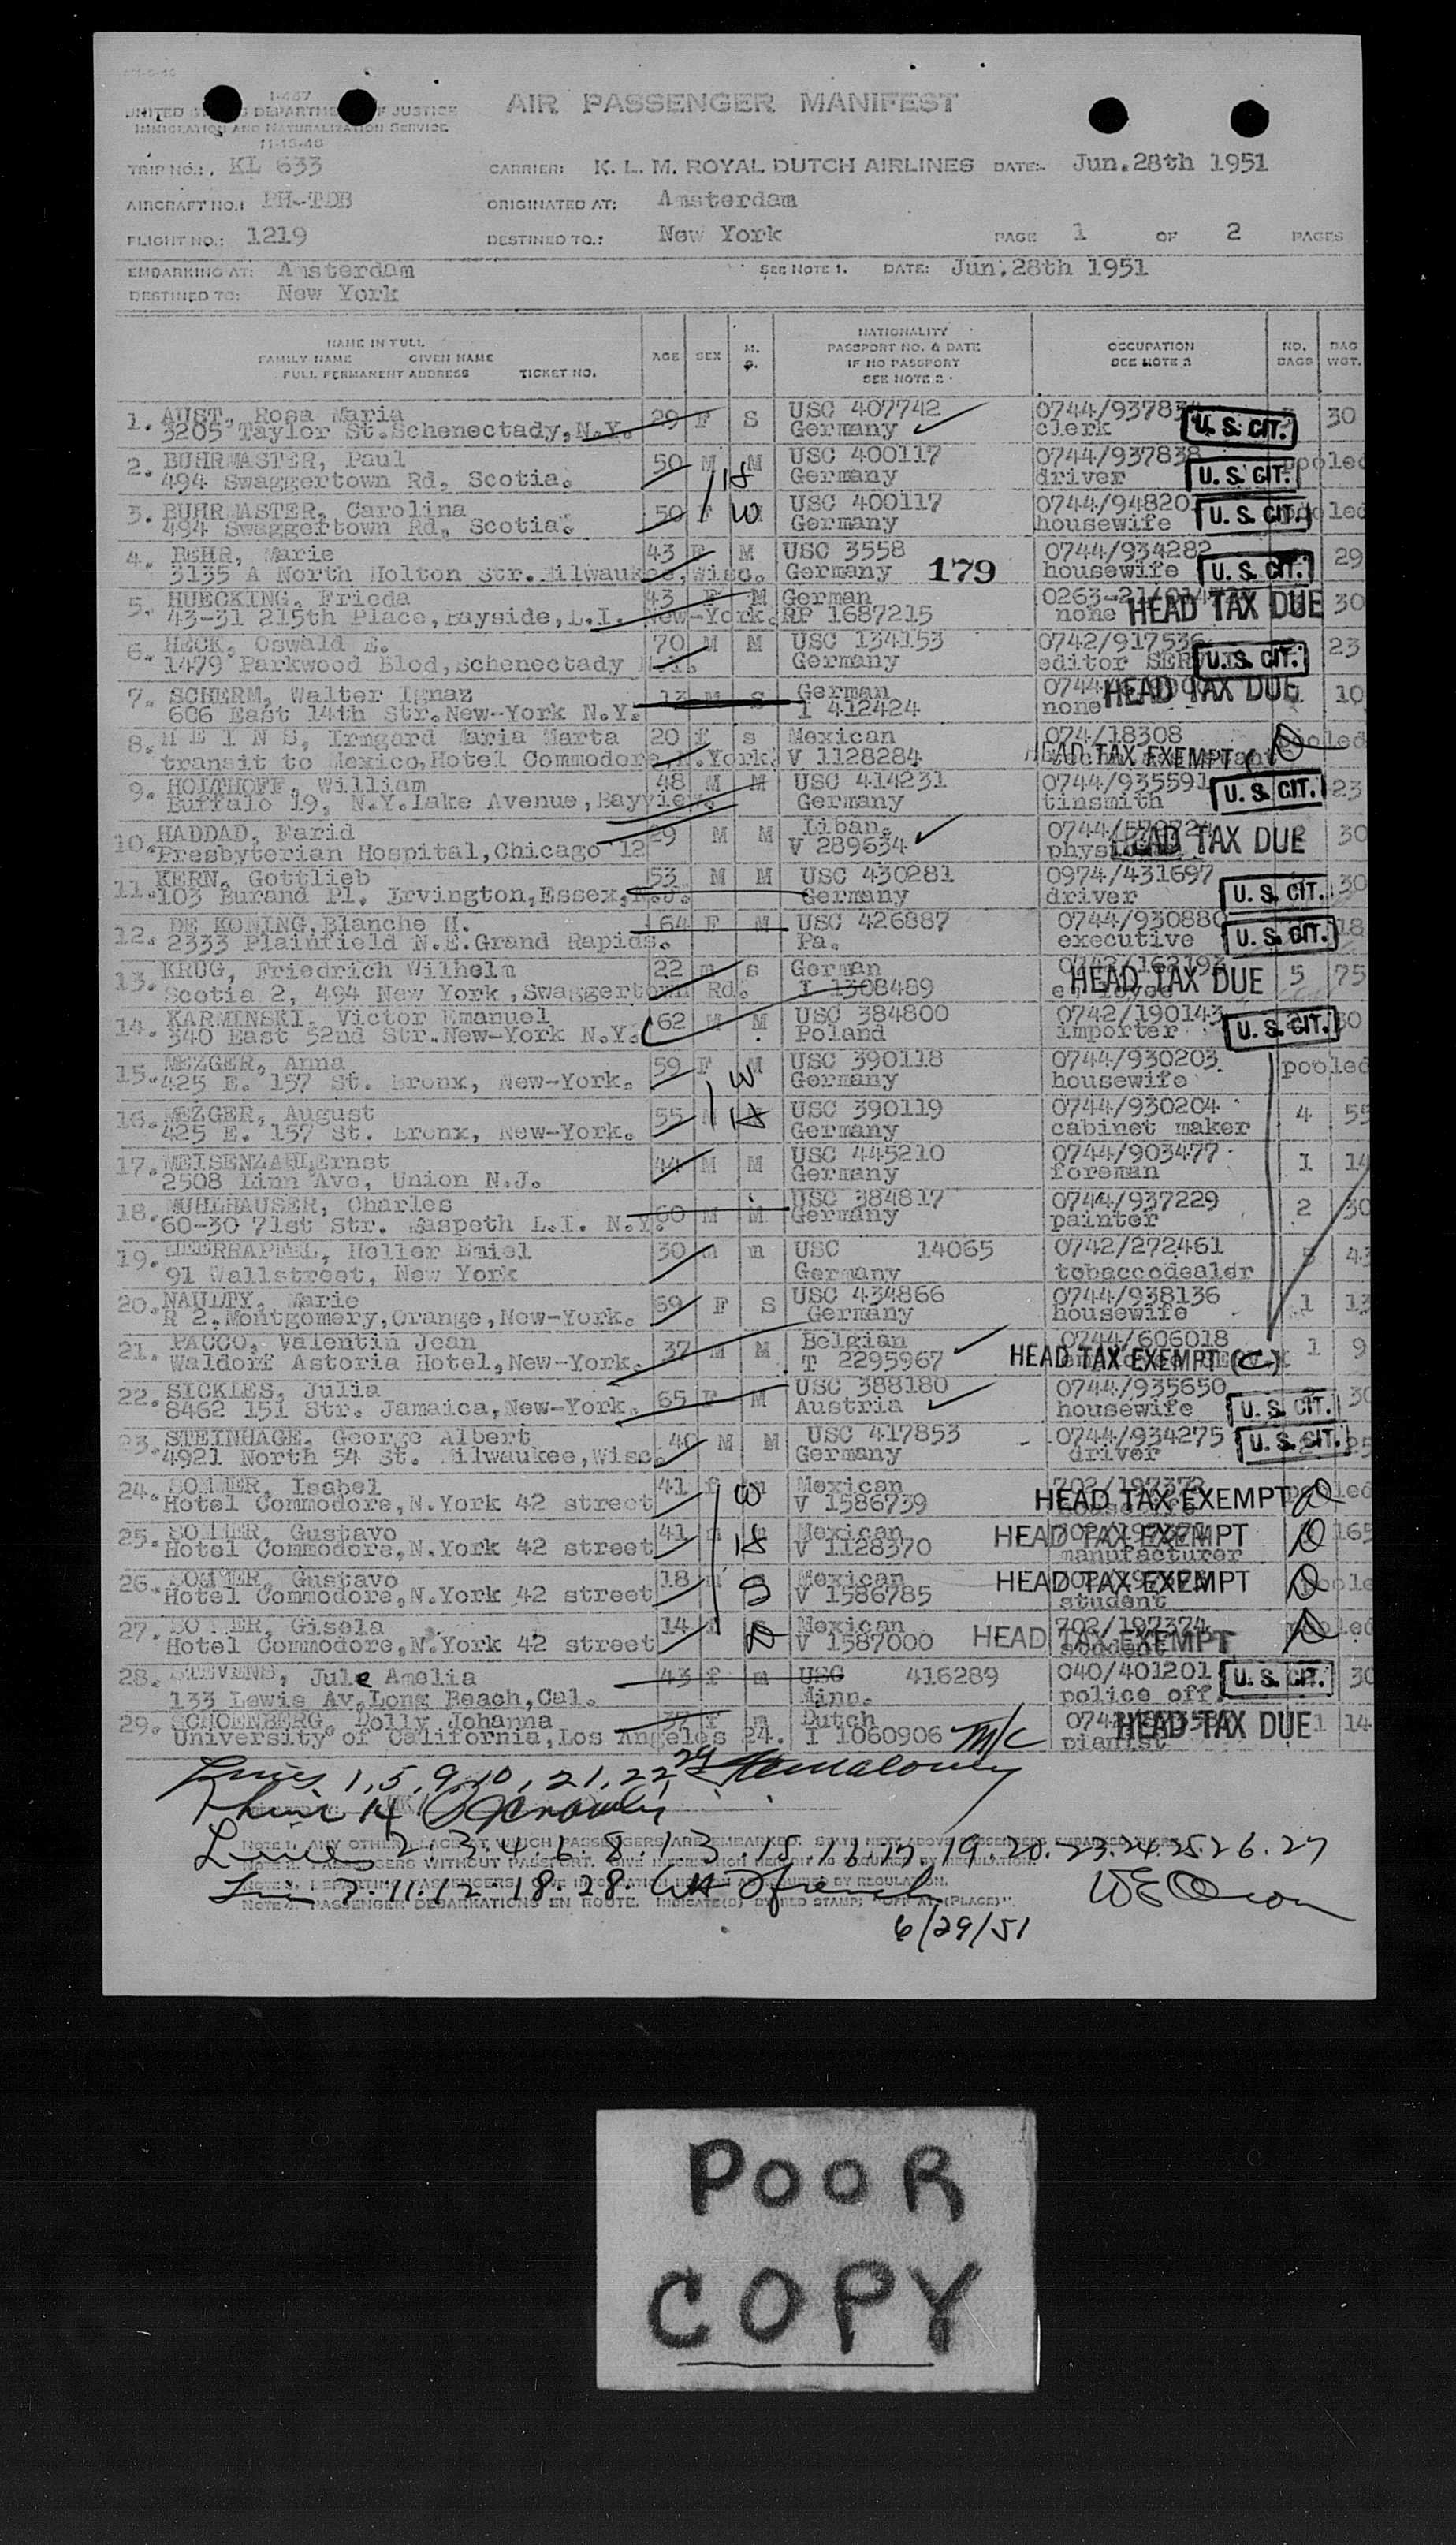 I-487
UNITED STATES DEPARTMENT OF JUSTICE
IMMIGRATION AND NATURALIZATION SERVICE
11-15-48
AIR PASSENGER MANIFEST
TRIP NO.: KL 633 CARRIER: K. L. M. ROYAL DUTCH AIRLINES DATE: Jun.28th 1951
AIRCRAFT NO.: PH-TDB ORIGINATED AT: Amsterdam
FLIGHT NO.: 1219 DESTINED TO.: New York PAGE 1 OF 2 PAGES
EMBARKING AT: Amsterdam SEE NOTE 1. DATE: Jun.28th 1951
DESTINED TO: New York
NAME IN FULL
FAMILY NAME GIVEN NAME
FULL PERMANENT ADDRESS TICKET NO.
AGE SEX M. S.
NATIONALITY
PASSPORT NO. & DATE
IF NO PASSPORT
SEE NOTE 2
OCCUPATION
SEE NOTE 3
NO. BAGS
BAG WGT.
1. AUST, Rosa Maria 29 F S USC 407742 0744/93783 30
3205 Taylor St.Schenectady,N.Y. Germany clerk U.S. CIT.
2. BUHRMASTER, Paul 50 M M USC 400117 0744/937838 pooled
494 Swaggertown Rd, Scotia. H Germany driver U.S. CIT.
3. BUHRMASTER, Carolina 50 F USC 400117 0744/94820 pooled
494 Swaggertown Rd, Scotia. W Germany housewife U.S. CIT.
4. BEHR, Marie 43 F M USC 3558 0744/934282 29
3135 A North Holton Str.Milwaukee,Wisc. Germany 179 housewife U.S. CIT.
5. HUECKING, Frieda 43 F M German 0263-21/ 30
43-31 215th Place,Bayside,L.I. New-York. RP 1687215 none HEAD TAX DUE
6. HECK, Oswald E. 70 M M USC 134153 0742/917536 23
1479 Parkwood Blod,Schenectady Germany editor U.S. CIT.
7. SCHERM, Walter Ignaz 13 M S German 0744/ 1 10
606 East 14th Str.New-York N.Y. I 412424 none HEAD TAX DUE
8. H E I N S, Irmgard Maria Marta 20 f s Mexican 074/18308 pooled
transit to Mexico,Hotel Commodore,N.York. V 1128284 HEAD TAX EXEMPT
9. HOLTHOFF, William 48 M M USC 414231 0744/935591 23
Buffalo 19, N.Y.Lake Avenue,Bayview. Germany tinsmith U.S. CIT.
10. HADDAD, Farid 29 M M Liban. 0744/570724 2 30
Presbyterian Hospital,Chicago 12 V 289634 HEAD TAX DUE
11. KERN, Gottlieb 53 M M USC 430281 0974/431697 30
103 Burand Pl. Irvington,Essex,N.J. Germany driver U.S. CIT.
12. DE KONING,Blanche H. 64 F M USC 426887 0744/930880 18
2333 Plainfield N.E.Grand Rapids. Pa. executive U.S. CIT.
13. KRUG, Friedrich Wilhelm 22 m s German 0742/162193 5 75
Scotia 2, 494 New York,Swaggertown Rd. I 1308489 HEAD TAX DUE
14. KARMINSKI, Victor Emanuel 62 M M USC 384800 0742/190143 30
340 East 52nd Str.New-York N.Y. Poland importer U.S. CIT.
15. MEZGER, Anna 59 F M USC 390118 0744/930203. pooled
425 E. 157 St. Bronx, New-York. W Germany housewife
16. MEZGER, August 55 M USC 390119 0744/930204 4 55
425 E. 157 St. Bronx, New-York. H Germany cabinet maker
17. MEISENZAHL,Ernst 44 M M USC 445210 0744/903477 1 14
2508 Linn Ave, Union N.J. Germany foreman
18. MUHLHAUSER, Charles 60 M M USC 384817 0744/937229 2 30
60-30 71st Str. Maspeth L.I. N.Y. Germany painter
19. Heller Emiel 30 m m USC 14065 0742/272461 5 43
91 Wallstreet, New York Germany tobaccodealer
20. NAULTY, Marie 69 F S USC 434866 0744/938136 1 13
R 2,Montgomery,Orange,New-York. Germany housewife
21. PACCO, Valentin Jean 37 M M Belgian 0744/606018 1 9
Waldorf Astoria Hotel,New-York. T 2295967 HEAD TAX EXEMPT (C)
22. SICKLES, Julia 65 F M USC 388180 0744/935650 30
8462 151 Str. Jamaica,New-York. Austria housewife U.S. CIT.
23. STEINHAGE, George Albert 40 M M USC 417853 0744/934275 25
4921 North 54 St. Milwaukee,Wisc. Germany driver U.S. CIT.
24. SOMMER, Isabel 41 f m Mexican 702/197372 pooled
Hotel Commodore,N.York 42 street W V 1586739 HEAD TAX EXEMPT
25. SOMMER, Gustavo 41 m Mexican 165
Hotel Commodore,N.York 42 street H V 1128370 manufacturer HEAD TAX EXEMPT
26. SOMMER, Gustavo 18 Mexican pooled
Hotel Commodore,N.York 42 street S V 1586785 student HEAD TAX EXEMPT
27. SOMMER, Gisela 14 f Mexican 702/197374 pooled
Hotel Commodore,N.York 42 street D V 1587000 student HEAD TAX EXEMPT
28. STEVENS, Jule Amelia 43 f m USC 416289 040/401201 30
133 Lewis Av,Long Beach,Cal. Minn. police off. U.S. CIT.
29. SCHOENBERG, Dolly Johanna 37 f m Dutch 1 14
University of California,Los Angeles 24. I 1060906 pianist HEAD TAX DUE
Lines 1, 5, 9, 10, 21, 22, 29
14
NOTE 1. ANY OTHER PLACE AT WHICH PASSENGERS ARE EMBARKED.
Lines 2. 3. 4. 6. 8. 13. 15. 16. 17. 19. 20. 23. 24. 25. 26. 27
NOTE 2. PASSENGERS WITHOUT PASSPORT.
NOTE 3. DEPARTING PASSENGERS, BY REGULATION.
7. 11. 12. 18. 28.
NOTE 4. PASSENGER DEBARKATIONS EN ROUTE. INDICATE(D) BY RED STAMP: "OFF AT (PLACE)".
6/29/51
POOR
COPY